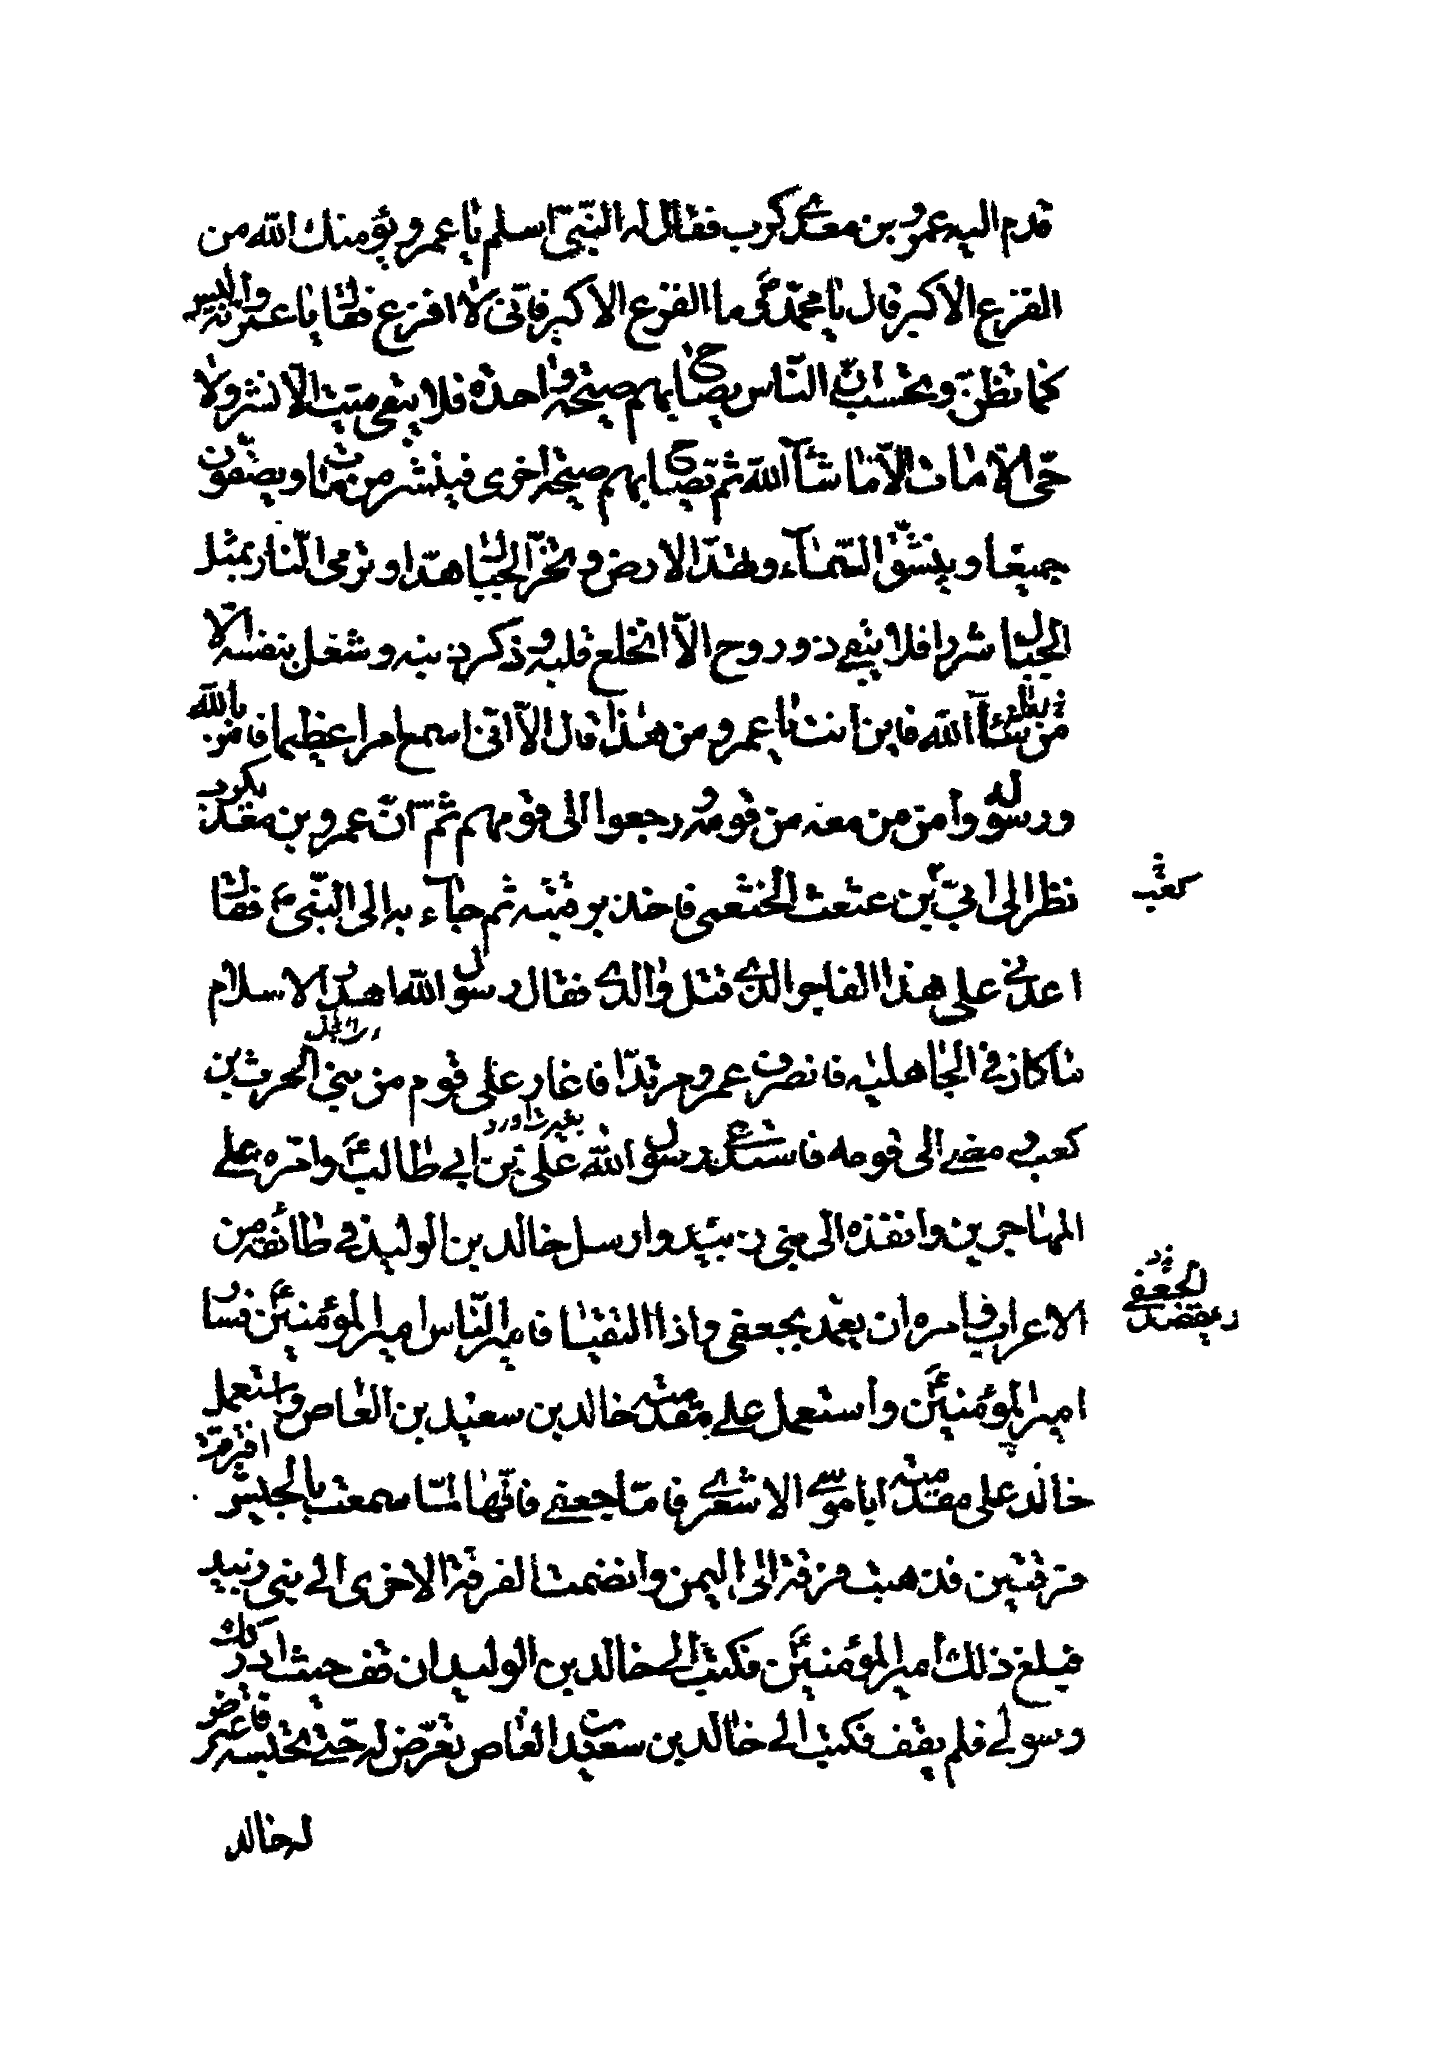 قدم اليه عمرو بن معدي كرب فقال له النبي اسلم يا عمرو يؤمنك الله من
الفزع الاكبر قال يا محمد وما الفزع الاكبر فاني لا افزع فقال يا عمرو انه ليس
كما تظن وتحسب ان الناس يصاح بهم صيحة واحدة فلا يبقى ميت الا نشر ولا
حي الا مات الا ما شاء الله ثم يصاح بهم صيحة اخرى فينشر من مات ويصفون
جميعا وينشق السماء وتهد الارض وتخر الجبال هدا وترمى النار بمثل
الجبال شررا فلا يبقى ذو روح الا انخلع قلبه وذكر ذنبه وشغل بنفسه الا
من شاء الله فاين انت يا عمرو من هذا قال الا اني اسمع امرا عظيما فامن بالله
ورسوله وامن من معه من قومه ورجعوا الى قومهم ثم ان عمرو بن معدي كرب
نظر الى ابي بن عثعث الخثعمي فاخذ برقبته ثم جاء به الى النبي فقال
كعب
اعدني على هذا الفاجر الذي قتل والدي فقال رسول الله اهدر الاسلام
ما كان في الجاهلية فانصرف عمرو مرتدا فاغار على قوم من بني الحرث بن
كعب ومضى الى قومه فاستدعى رسول الله علي بن ابي طالب وامره على
المهاجرين وانفذه الى بني زبيد وارسل خالد بن الوليد في طائفة من
الاعراب وامره ان يعمد لجعفي واذا التقيا فامير الناس امير المؤمنين فسار
امير المؤمنين واستعمل على مقدمته خالد بن سعيد بن العاص واستعمل
خالد على مقدمته ابا موسى الاشعري فاما جعفي فانها لما سمعت بالجيش افترقت
فرقتين فذهبت فرقة الى اليمن وانضمت الفرقة الاخرى الى بني زبيد
فبلغ ذلك امير المؤمنين فكتب الى خالد بن الوليد ان قف حيث ادركك
رسولي فلم يقف فكتب الى خالد بن سعيد بن العاص تعرض له حتى تحبسه فاعترض
له خالد